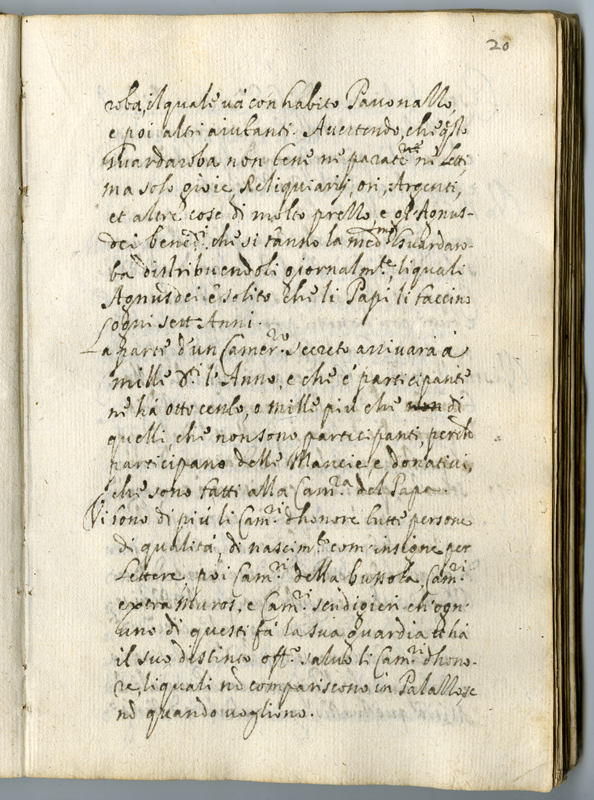 20
roba, il quale và con habito Pavonazzo,
e poi altri aiutanti. Avertendo, che q.sto
Guardaroba non tiene ne parati.nti nè letti,
ma solo gioie, Reliquiarij, ori, Argenti,
et altre cose di molto prezzo, e gl'Agnus-
dei bened.ti che si tânno la med.ma Guardaro-
ba distribuendoli giornalm.te, liquali
Agnusdei è solito che li Papi li faccino
ogni sett'Anni.
La parte d'un Camer.ro secreto arrivarà a
mille d.ti l'Anno, e che è participante
ne hà otto cento, o mille più che non di
quelli, che non sono participanti, perche
participano delle Mancie e donativi,
che sono fatti alla Cam.ra del Papa.
Vi sono di più li Cam.ri d'honore tutte persone
di qualità, di nascim.to com' insigne per
lettere poi Cam.ri della bussola, Cam.ri
extra Muros, e Cam.ri scudieri ch'ogn'
uno di questi fà la sua guardia et hà
il suo distinto off.o salvo li Cam.ri d'hono-
re, liquali nō compariscono in Palazzo, se
nō quando vogliono.